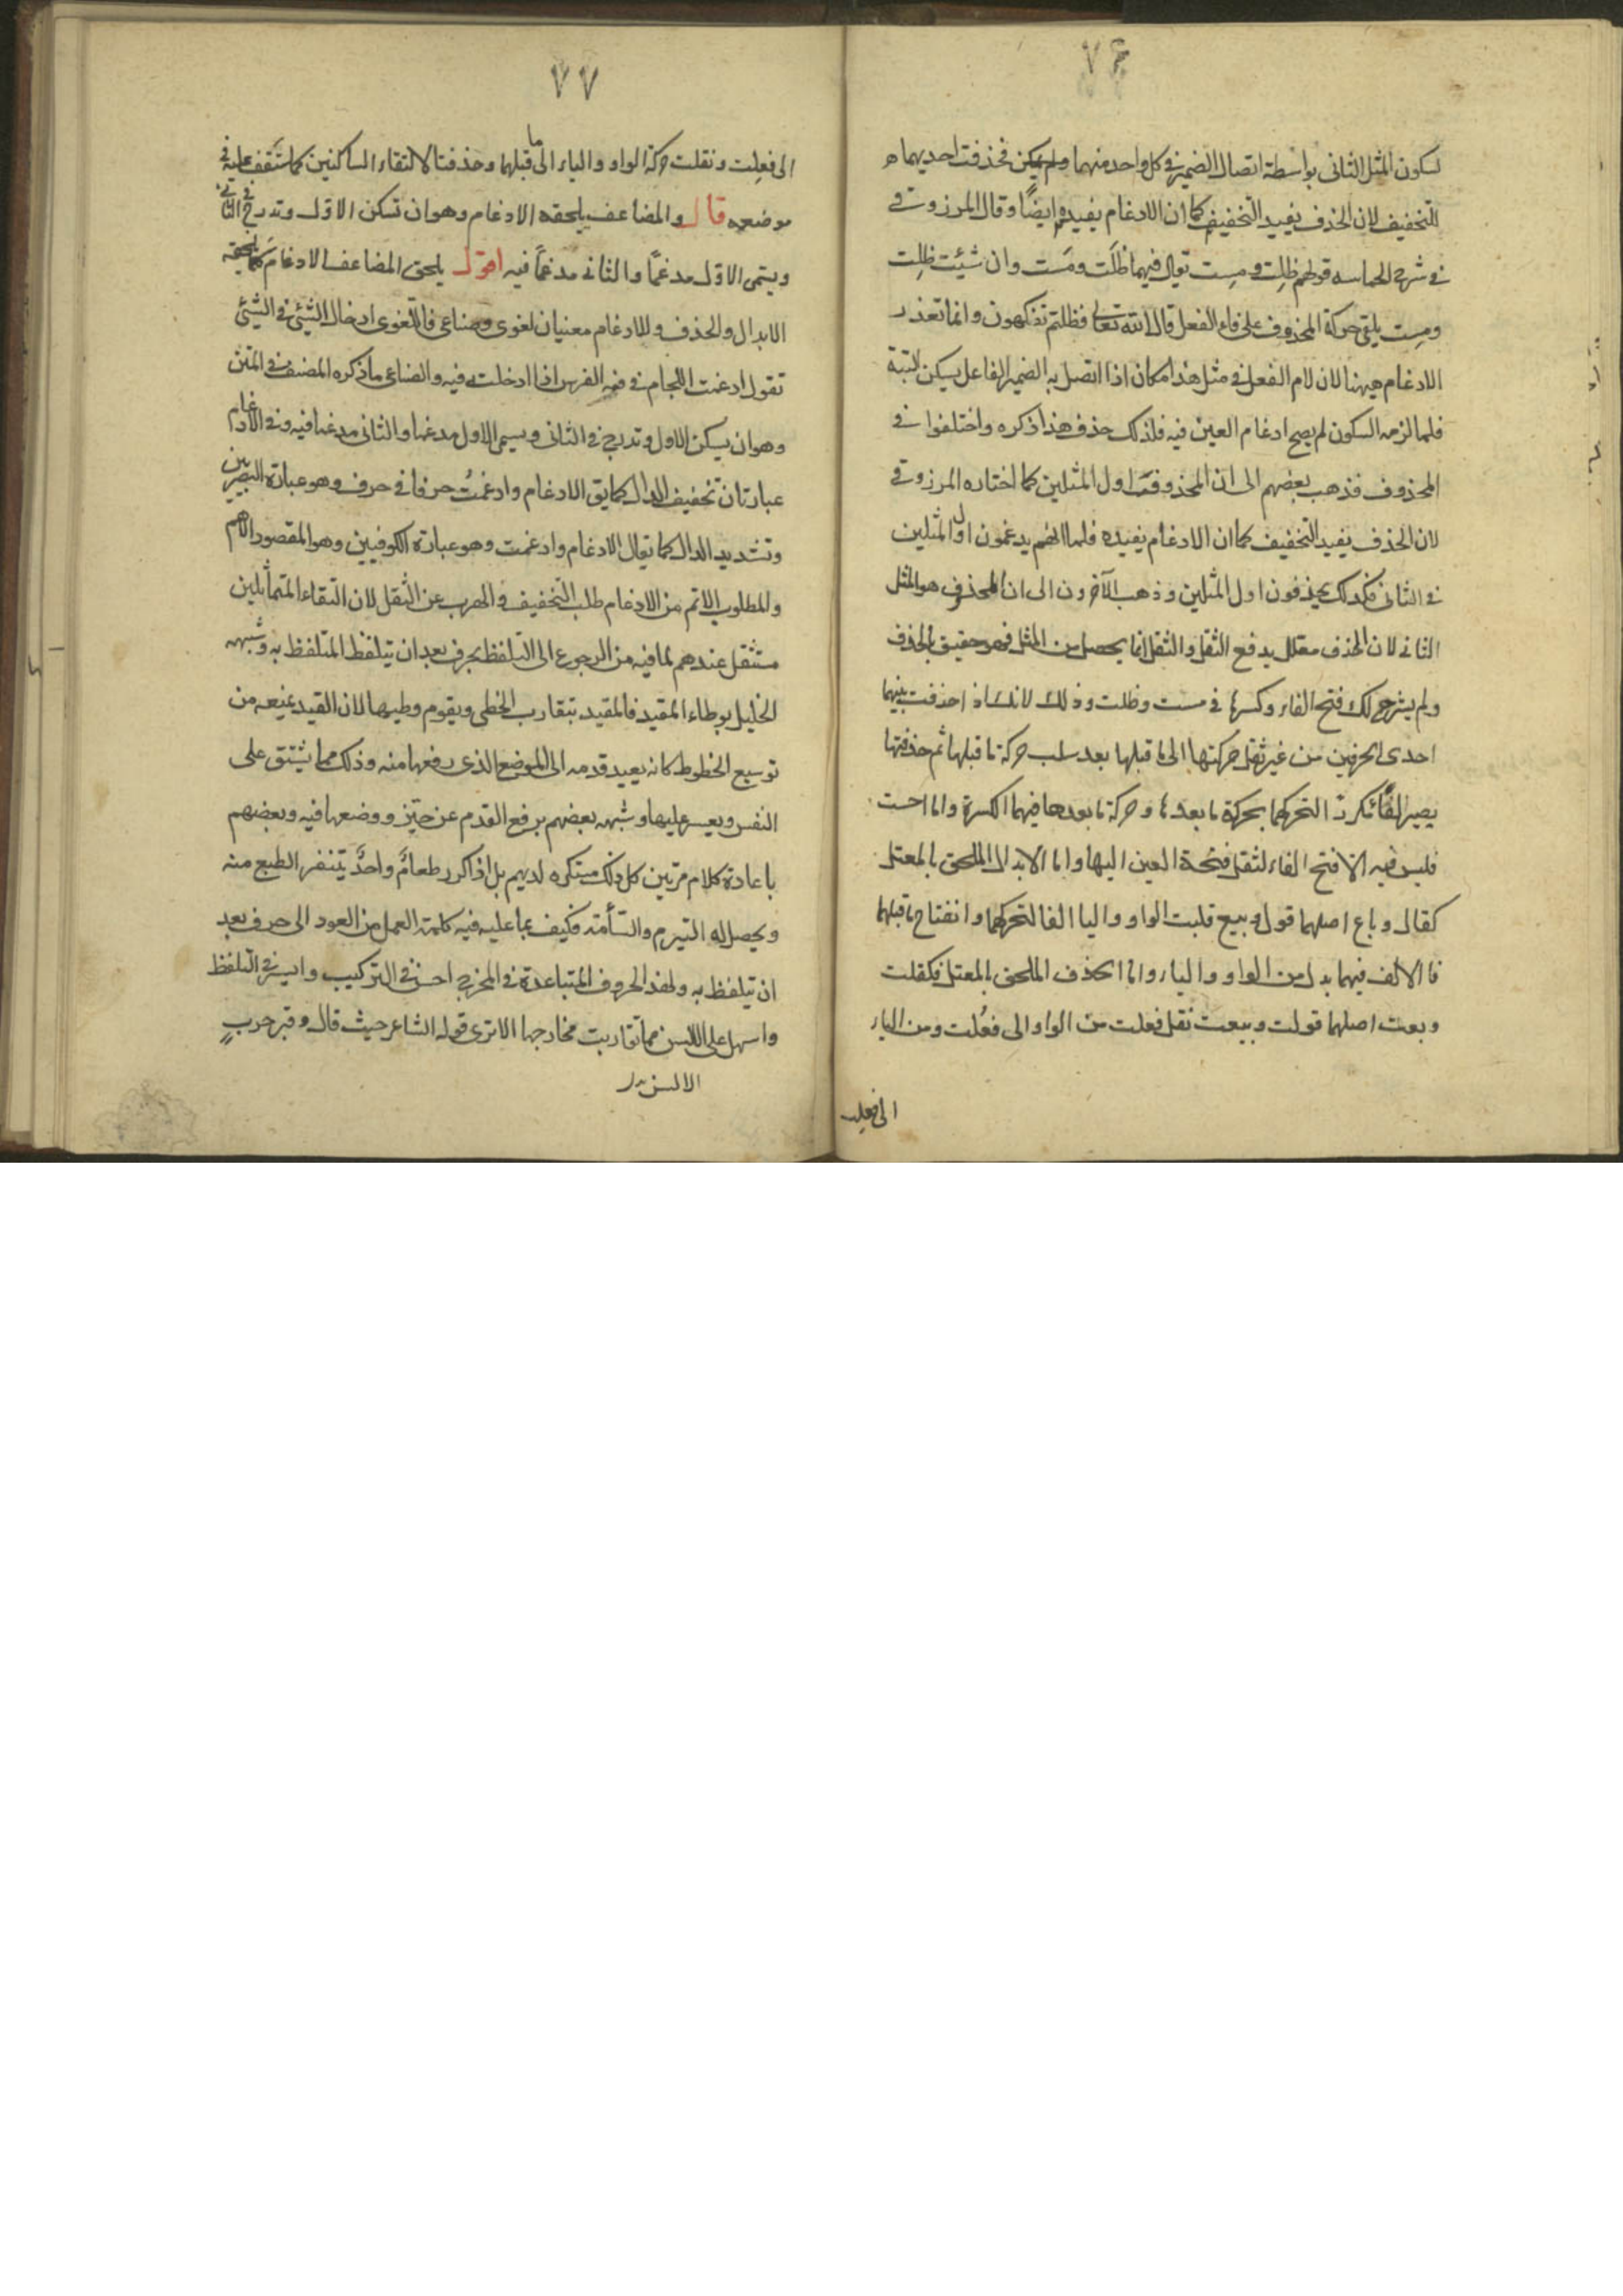 ٧٦
لسكون المثل الثانى بواسطة اتصال الضمير فى كل واحد منهما ولم يمكن فحذفت احديهما
للتخفيف لان الحذف يفيد التخفيف كما ان الادغام يفيده ايضًا وقال المرزوقى
فى شرح الحماسه قولهم ظلت ومست تقال فيهما ظَلت ومَست وان شئت ظِلت
ومِست يلقى حركة المحذوف على فاء الفعل قال الله تعالى فظلتم تفكهون وانما تعذر
الادغام ههنا لان لام الفعل فى مثل هذا مكان اذا اتصل به الضمير الفاعل يسكن لتبة
فلما لزمه السكون لم يصح ادغام العين فيه فلذلك حذف هذا ذكره واختلفوا فى
المحذوف فذهب بعضهم الى ان المحذوف اول المثلين كما اختاره المرزوقى
لان الحذف يفيد التخفيف كما ان الادغام يفيده فلما انهم يدغمون اول المثلين
فى الثانى فكذلك يحذفون اول المثلين وذهب الآخرون الى ان المحذوف هو المثل
الثانى لان الحذف معلل بدفع الثقل والثقل انما يحصل من المثل فهو حقيق بالحذف
ولم يترجح لك فتح الفاء وكسرها فى مست وظلت وذلك لانك اذ احذفت بينهما
احدى الحرفين من غير ثقل حركتها الى ما قبلها بعد سلب حركة ما قبلها ثم حذفتها
يصير التحركهما بحركة ما بعدها وحركة ما بعدها فيهما الكسرة واما احست
فليس فيه الا فتح الفاء لثقل فتحة العين اليها واما الابدال الملحق بالمعتل
كقال وباع اصلهما قول وبيع قلبت الواو واليا الفا لتحركهما وانفتاح ما قبلهما
فالالف فيهما بدل من الواو والياء واما الحذف الملحق بالمعتل فكقلت
وبعت اصلهما قولت وبيعت نقل فعلت من الواو الى فعُلت ومن الياء
الى فعلت
٧٧
الى فعِلت ونقلت حركة الواو والياء الى ما قبلهما وحذفتا لالتقاء الساكنين كما ستقف عليه فى
موضعه قال والمضاعف يلحقه الادغام وهو ان تسكن الاول وتدرج فى الثانى
ويسمى الاول مدغمًا والثانى مدغمًا فيه اقول يلحق المضاعف الادغام كما يلحقه
الابدال والحذف وللادغام معنيان لغوى وصناعى فاللغوى ادخال الشئ فى الشئ
تقول ادغمت اللجام فى فم الفرس اذا ادخلت فيه والصناعى ما ذكره المصنف فى المتن
وهو ان يسكن الاول وتدرج فى الثانى ويسمى الاول مدغما والثانى مدغما فيه وفى الادغام
عبارتان تخفيف الدال كما يق الادغام وادغمتُ حرفا فى حرف وهو عبارة البصريين
وتشديد الدال كما يقال الادغام وادغمت وهو عبارة الكوفيين وهو المقصود الاهم
والمطلوب الاتم من الادغام طلب التخفيف والهرب عن الثقل لان التقاء المتماثلين
مستثقل عندهم لما فيه من الرجوع الى التلفظ بحرف بعد ان يتلفظ المتلفظ به وشبهه
الخليل بوطاء المقيد فالمقيد بتقارب الخطى ويقوم وطيها لان القيد يمنعه من
توسيع الخطوط كانه يعيد قدمه الى الموضع الذى رفعها منه وذلك مما يشتق على
النفس ويعسر عليها وشبهه بعضهم برفع القدم عن حيز ووضعها فيه وبعضهم
باعادة كلام مرتين كل ذلك مستكره لديهم بل اذا كرر طعامٌ واحدٌ يتنفر الطبع منه
ويحصل له التبرم والسأمة فكيف بما عليه فيه كلمة العمل من العود الى حرف بعد
ان تيلفظ به ولهذا الحروف المتباعدة فى المخرج احسن فى التركيب وايسر فى التلفظ
واسهل على اللسن مما تقاربت مخارجها الا ترى قول الشاعر حيث قال وقبر حربٍ